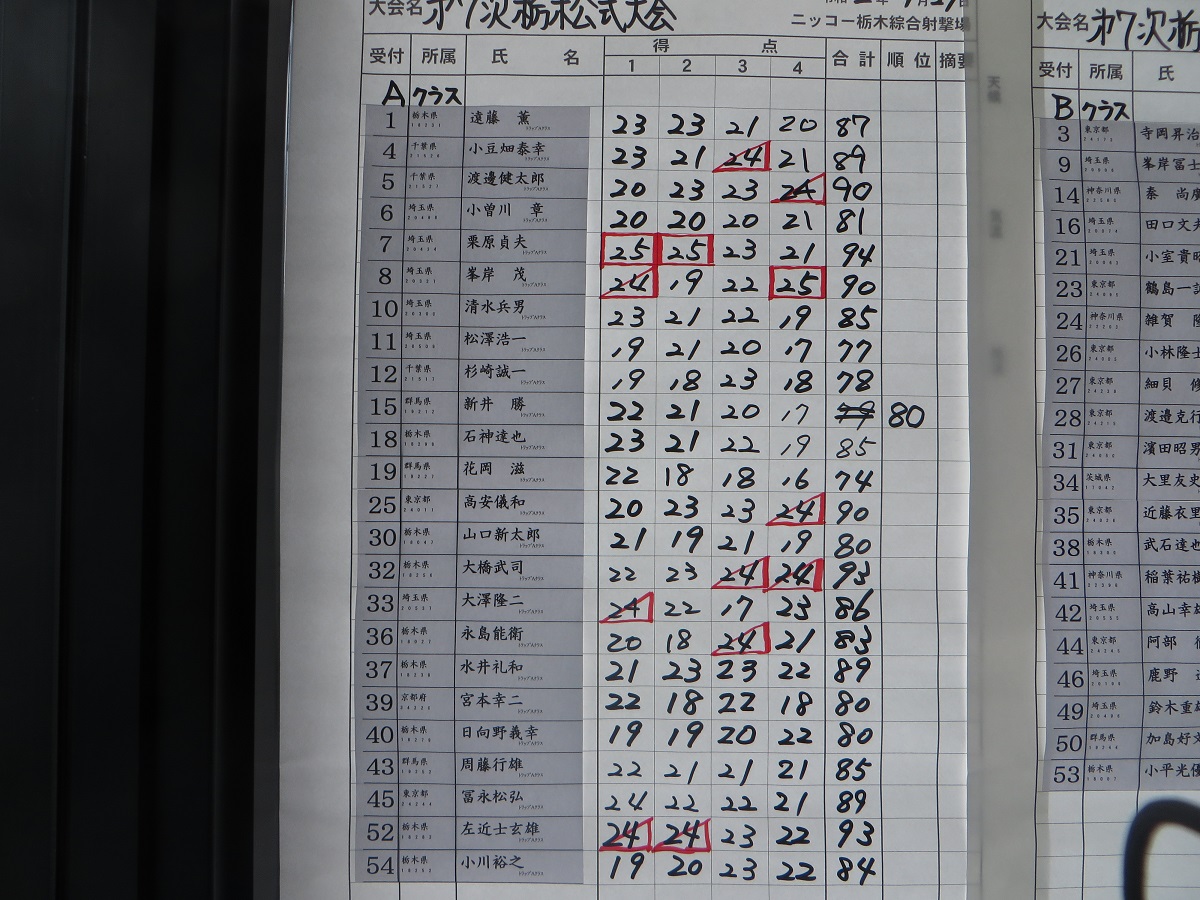 大会名 第7次栃木公式大会
ニッコー栃木綜合射撃場
受付 所属 氏 名 得点 1 2 3 4 合計 順位 摘要
A クラス
1 栃木県 遠藤 薫 23 23 21 20 87
4 千葉県 小豆畑泰幸 23 21 24 21 89
5 千葉県 渡邊健太郎 20 23 23 24 90
6 埼玉県 小曽川 章 20 20 20 21 81
7 埼玉県 栗原貞夫 25 25 23 21 94
8 埼玉県 峯岸 茂 24 19 22 25 90
10 埼玉県 清水兵男 23 21 22 19 85
11 埼玉県 松澤浩一 19 21 20 17 77
12 千葉県 杉崎誠一 19 18 23 18 78
15 群馬県 新井 勝 22 21 20 17 79 80
18 栃木県 石神達也 23 21 22 19 85
19 群馬県 花岡 滋 22 18 18 16 74
25 東京都 高安儀和 20 23 23 24 90
30 栃木県 山口新太郎 21 19 21 19 80
32 栃木県 大橋武司 22 23 24 24 93
33 埼玉県 大澤隆二 24 22 17 23 86
36 栃木県 永島能衛 20 18 24 21 83
37 栃木県 水井礼和 21 23 23 22 89
39 京都府 宮本幸二 22 18 22 18 80
40 栃木県 日向野義幸 19 19 20 22 80
43 群馬県 周藤行雄 22 21 21 21 85
45 東京都 冨永松弘 24 22 22 21 89
52 栃木県 左近士玄雄 24 24 23 22 93
54 栃木県 小川裕之 19 20 23 22 84
大会名 第7次栃
受付 所属 氏
B クラス
3 東京都 寺岡昇治
9 埼玉県 峯岸冨士
14 神奈川県 秦 尚
16 埼玉県 田口文
21 埼玉県 小室貴
23 東京都 鶴島一
24 神奈川県 雑賀
26 東京都 小林隆
27 東京都 細貝
28 東京都 渡邉克行
31 東京都 濱田昭男
34 茨城県 大里友史
35 東京都 近藤衣里
38 栃木県 武石達也
41 神奈川県 稲葉祐
42 埼玉県 高山幸
44 東京都 阿部
46 埼玉県 鹿野
49 埼玉県 鈴木重
50 群馬県 加島好文
53 栃木県 小平光